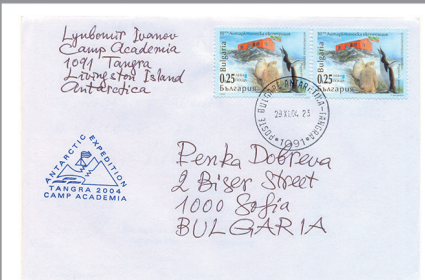 Lyubomir Ivanov
Camp Academia
1091 Tangra
Livingston Island
Antarctica
Bulgaria
0.25
България
Bulgaria
0.25
България
POSTE BULGARE ANTARCTICA-TANGRA
29 XI.04 23
*1091*
ANTARCTIC EXPEDITION
TANGRA 2004
CAMP ACADEMIA
Penka Dobreva
2 Biser Street
1000 Sofia
BULGARIA